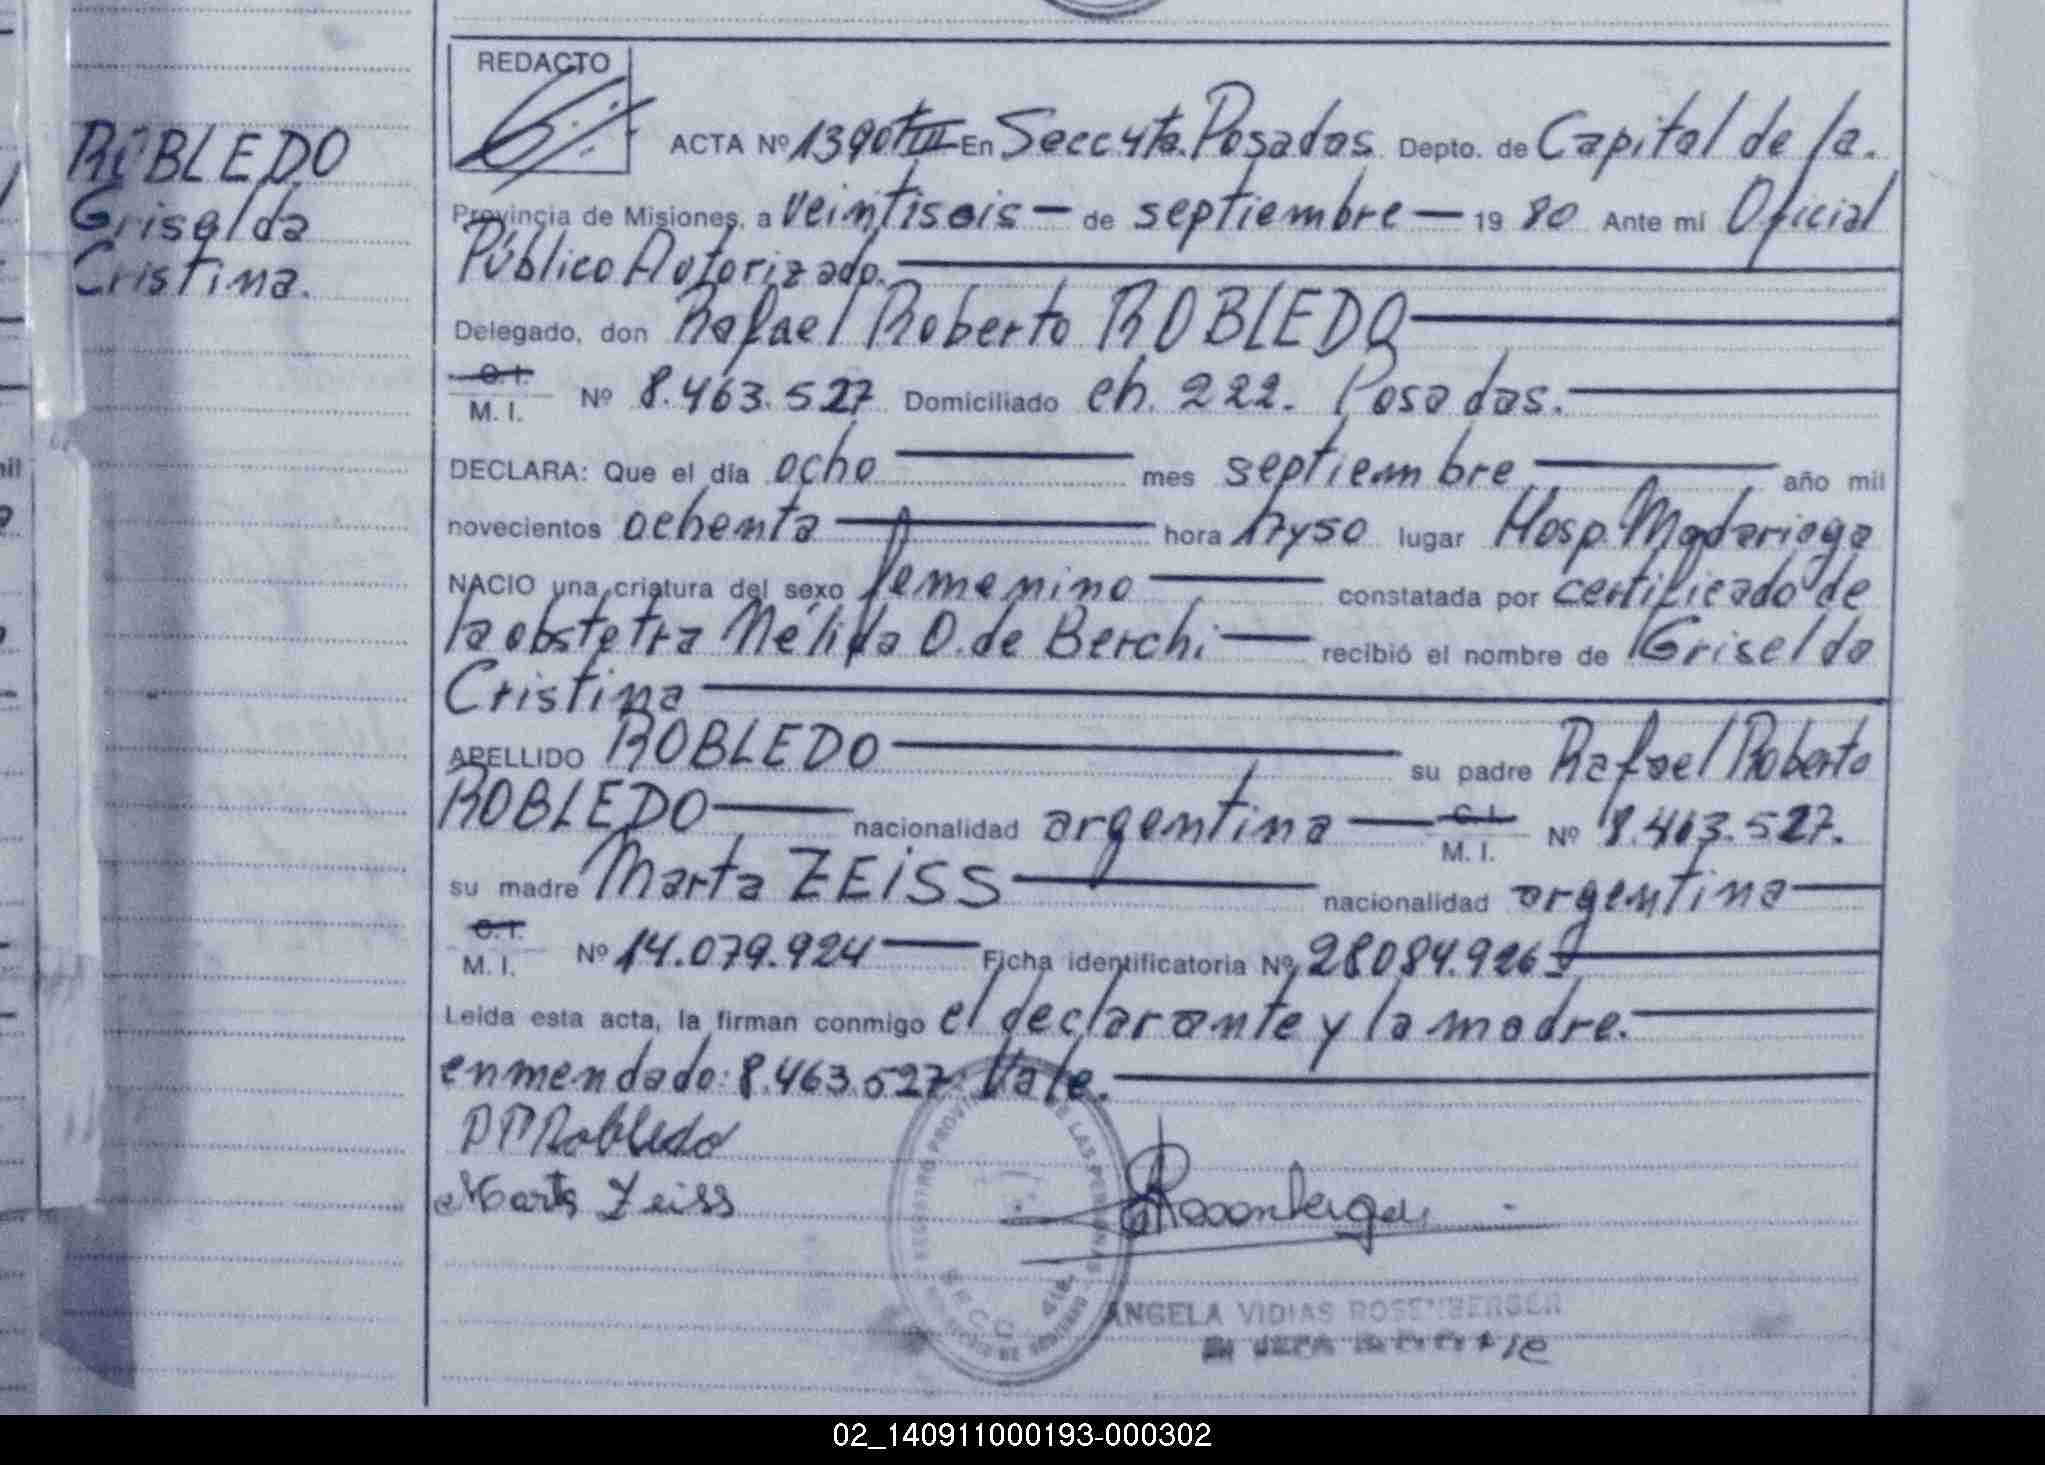 ROBLEDO
Griselda
Cristina.
REDACTO
ACTA Nº 1390 tºIII En Secc 4ta. Posadas Depto. de Capital de la.
Provincia de Misiones, a veintiseis — de septiembre — 19 80 Ante mí Oficial
Público Autorizado.
Delegado, don Rafael Roberto ROBLEDO
C. I.
M. I. Nº 8.463.527 Domiciliado ch. 222. Posadas.
DECLARA: Que el día ocho mes septiembre año mil
novecientos ochenta hora 17y50 lugar Hosp. Madariaga
NACIO una criatura del sexo femenino constatada por certificado de
la obstetra Nélida O. de Berchi recibió el nombre de Griselda
Cristina
APELLIDO ROBLEDO su padre Rafael Roberto
ROBLEDO nacionalidad argentina C. I. M. I. Nº 8.463.527.
su madre Marta ZEiSS nacionalidad argentina
C. I.
M. I. Nº 14.079.924 Ficha identificatoria Nº 28084.926
Leída esta acta, la firman conmigo el declarante y la madre.
enmendado: 8.463.527. Vale.
RRRobledo
Marta Zeiss
ANGELA VIDIAS ROSENBERGER
02_140911000193-000302